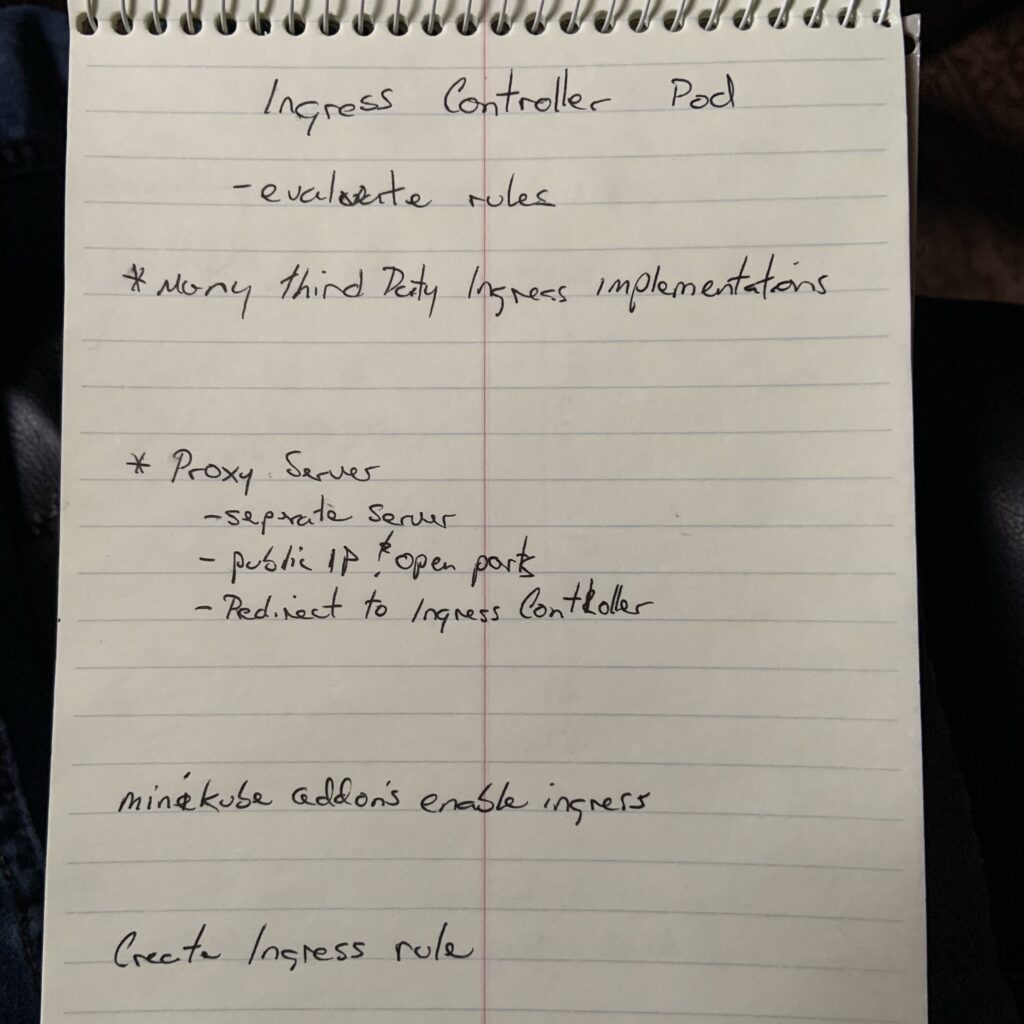 Ingress Controller Pod
- evaluate rules
* Many third Party Ingress implementations
* Proxy Server
- seperate Server
- public IP & open ports
- Redirect to Ingress Controller
minikube addon's enable ingress
Create Ingress rule